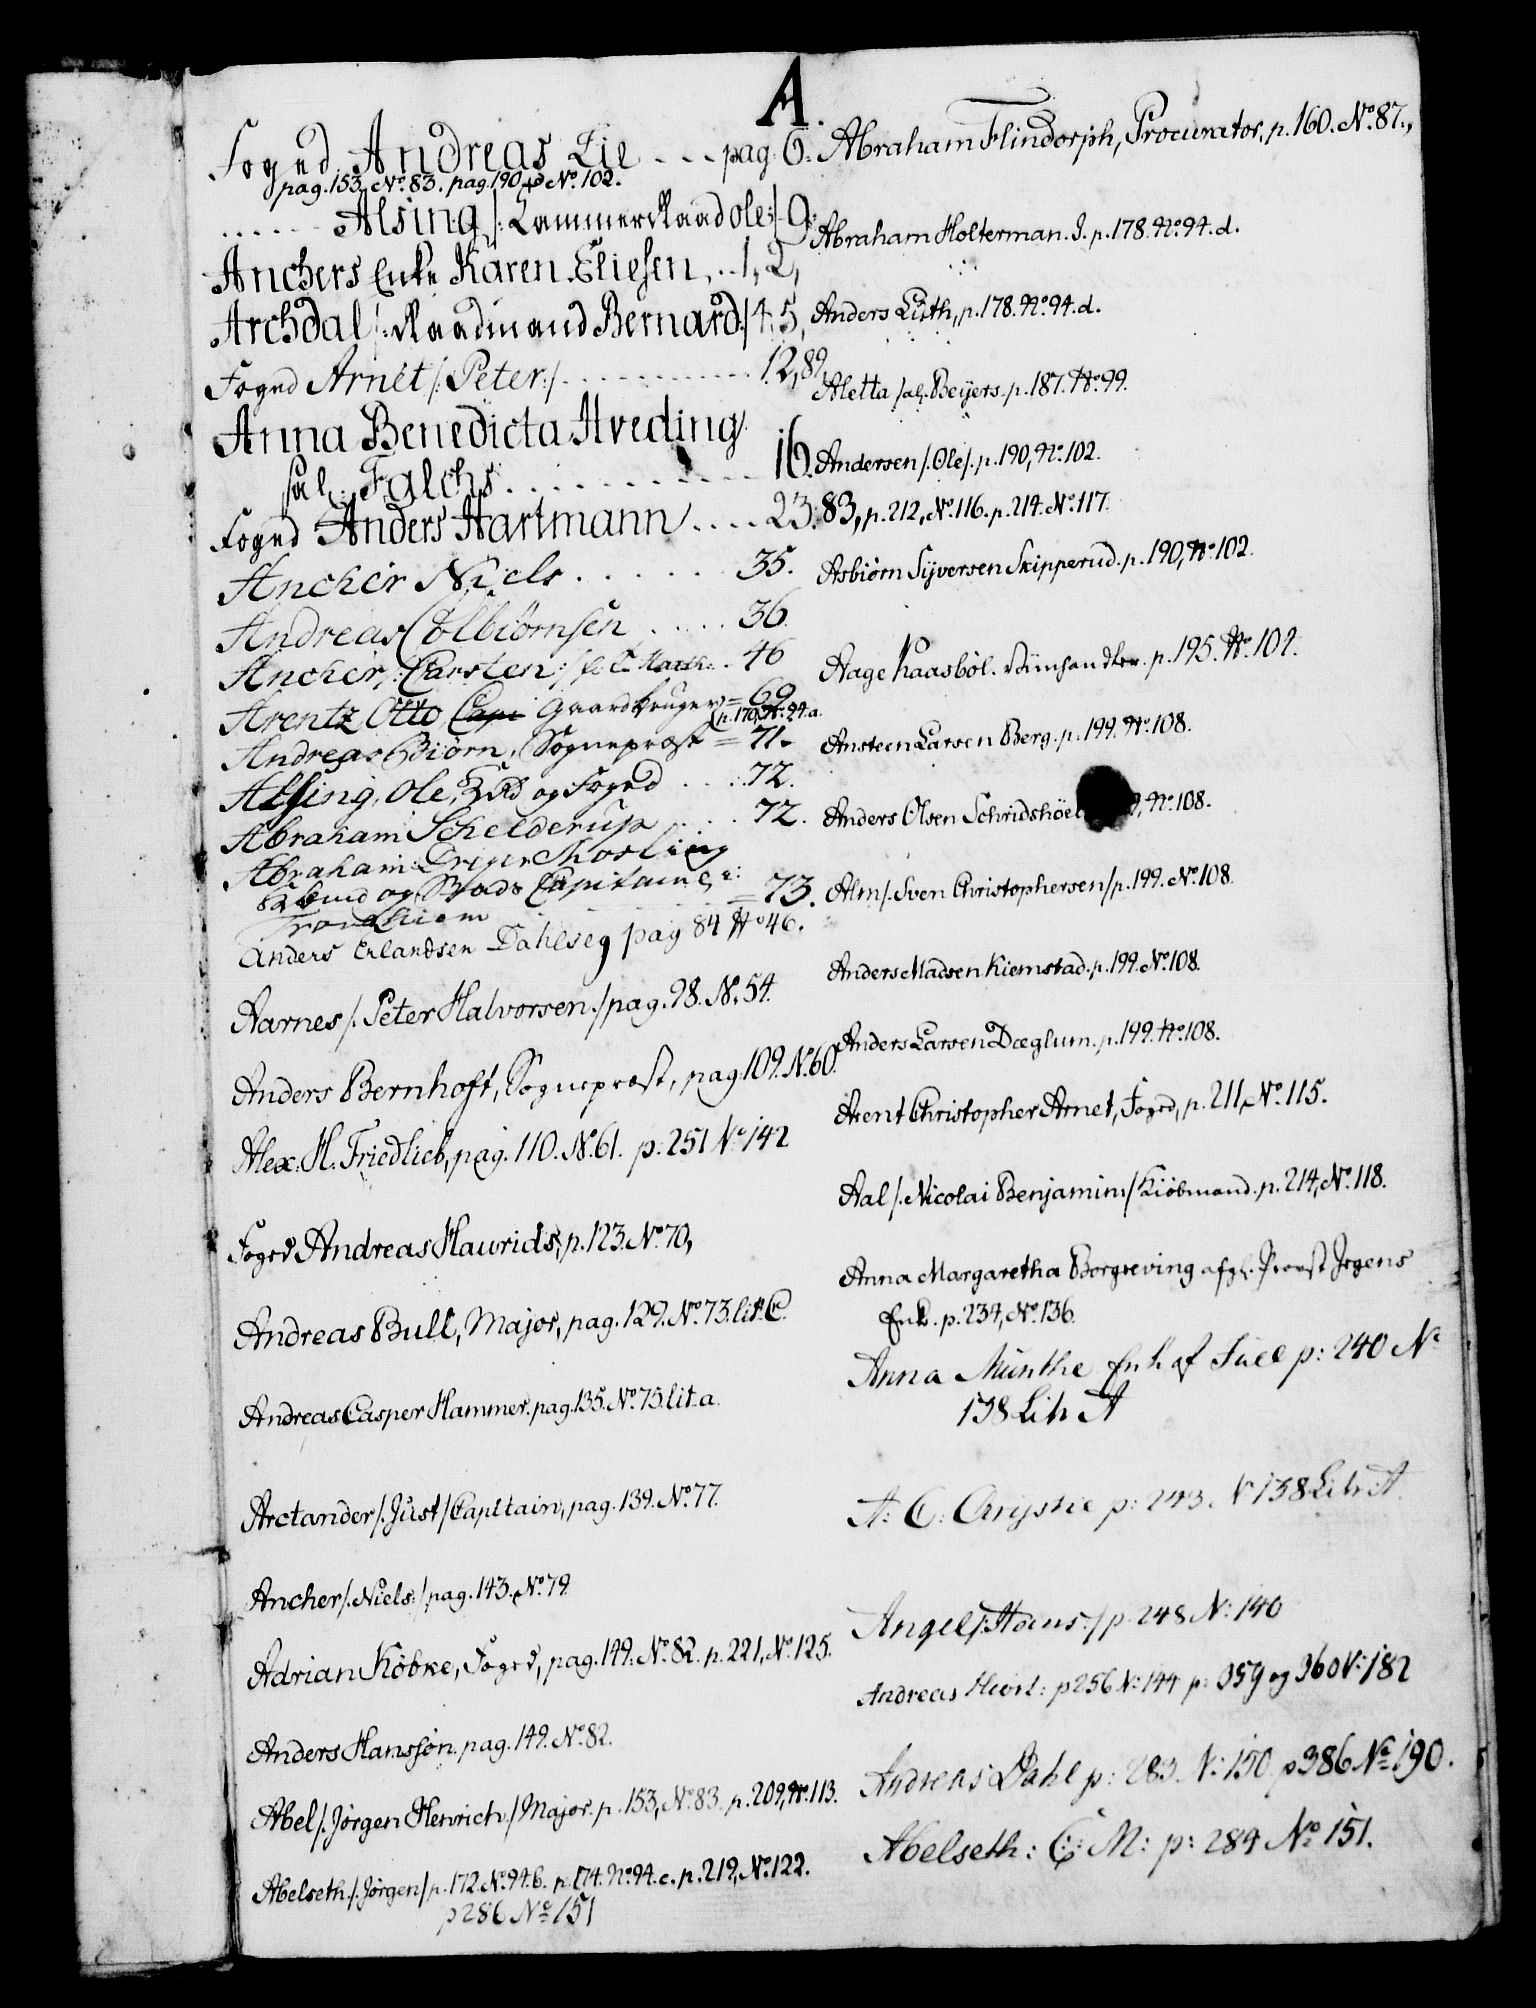 A.
Fogd Andreas Lie . . . pag. 6.
pag. 153. No. 83. pag. 190, No. 102.
. . . . . . Alsing /: Kammer Raad Ole :/ 9.
Anchers Enke Karen Eliesen, . . 1, 2,
Archdal /: Raadmand Bernard :/ 4, 5,
Fogd Arnet /: Peter :/ . . . . . . . . . 12, 89,
Anna Benedicta Hveding
sal. Falchs . . . . . . . . . . 16.
Fogd Anders Hartmann . . . . 23.
Ancher Niels . . . . . . 35.
Andreas Colbiørnsen . . . . . 36.
Ancher, Carsten :/ . 46
Arentz Otto Capi Gaardbruger = 69
(p. 170, No. 94. a.
Andreas Biørn, Sogneprest = 71.
Alsing, Ole, og Foged . . . . 72.
Abraham Schelderup . . . . 72.
Abraham
og Stads Capitaine i:
Trondhiem . . . . . = 73.
Anders Erlandsen Dahlseg pag 84 No 46.
Aarnes /: Peter Halvorsen :/ pag. 98. No. 54.
Anders Bernhoft, Sogneprest, pag. 109. No. 60.
Alex. H. Friedlieb, pag. 110. No. 61. p: 251 No 142
Foged Andreas Haurids, p. 123. No. 70,
Andreas Bull, Major, pag. 129. No. 73. lit. C.
Andreas Casper Hammer. pag. 135. No. 75. lit. a.
Arctander /: Just :/ Capitain, pag. 139. No. 77.
Ancher /: Niels :/ pag. 143. No. 79.
Adrian Kobke, Foged, pag. 149. No. 82. p. 221, No. 125.
Anders Hanssøn. pag. 149. No. 82.
Abel /: Jørgen Henrich :/ Major. p. 153, No. 83. p. 209, No. 113.
Abelseth /: Jørgen :/ p. 172. No. 94. b. p. 174. No. 94. c. p. 219, No. 122.
p 286 No 151
Abraham Flindorph, Procurator, p. 160. No. 87.,
Abraham Holterman. J. p. 178. No. 94. d.
Anders Lüth, p. 178. No. 94. d.
Aletta sal. Beijers. p. 187. No. 99.
Andersen /: Ole :/ p. 190, No. 102.
83, p. 212, No. 116. p. 214. No. 117.
Asbiørn Sijversen Skipperud. p. 190, No. 102.
Aage Kaasbøl. p. 195. No. 104.
Ansteen Larsen Berg. p. 199. No. 108.
Anders Olsen 9, No. 108.
Alm /: Sven Christophersen :/ p. 199. No. 108.
Anders Madsen Kiemstad. p. 199. No. 108.
Anders Larsen Dæglum. p. 199. No. 108.
Arent Christopher Arnet, Foged, p. 211, No. 115.
Aal /: Nicolai Benjamin :/ Kiøbmand. p. 214, No. 118.
Anna Margaretha Borgreving afgl. Provst Jrgens
Enke. p. 234, No. 136.
Anna Münthe Enke af Juel p: 240 No
138 Litr A
A: C: Chrystie p: 243 No 138 Litr A.
Angel /: Hoens :/ p. 248 No: 140
Andreas Hiort: p 256 No: 144 p: 359 og 360 No: 182
Andreas Dahl p: 283. No: 150. p 386 No 190.
Abelseth: C: M: p: 284 No 151.